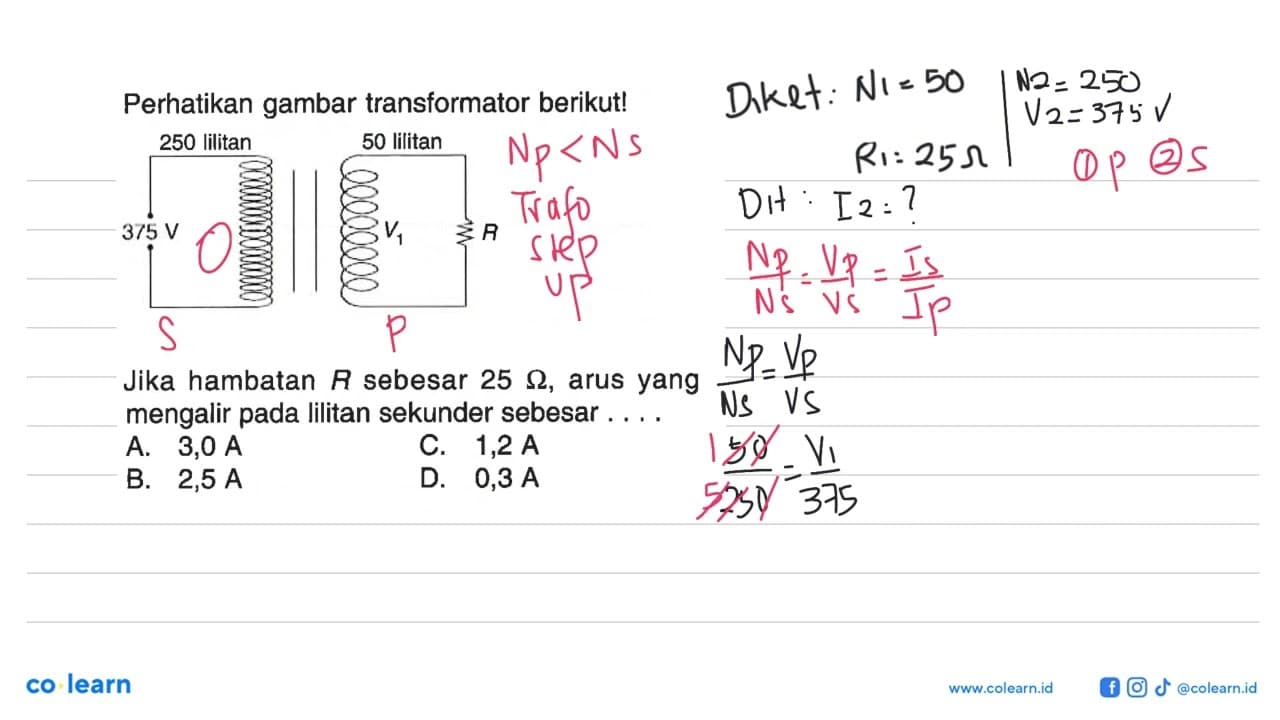 Perhatikan gambar transformator berikut!
250 lilitan
50 lilitan
375 V
V1
R
O
S
P
Np < Ns
Trafo
step
up
Jika hambatan R sebesar 25 Ω, arus yang
mengalir pada lilitan sekunder sebesar . . . .
A. 3,0 A
C. 1,2 A
B. 2,5 A
D. 0,3 A
Diket: N1 = 50
N2 = 250
V2 = 375 V
R1 = 25 Ω
① P ② S
Dit : I2 = ?
Np/Ns = Vp/Vs = Is/Ip
Np/Ns = Vp/Vs
1 50/5 250 = V1/375
co learn
www.colearn.id
@colearn.id